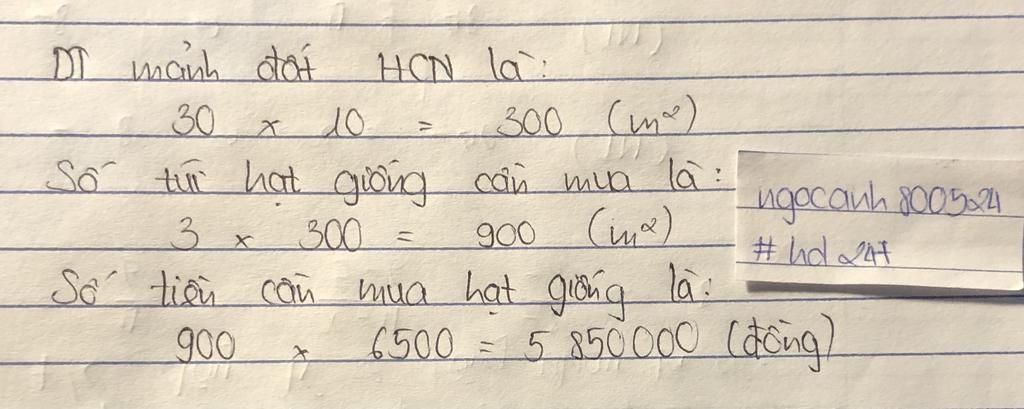 DT mảnh đất HCN là:
30 x 10 = 300 (m²)
Số túi hạt giống cần mua là:
3 x 300 = 900 (m²)
Số tiền cần mua hạt giống là:
900 x 6500 = 5 850000 (đồng)
ngocanh800524
#hd247